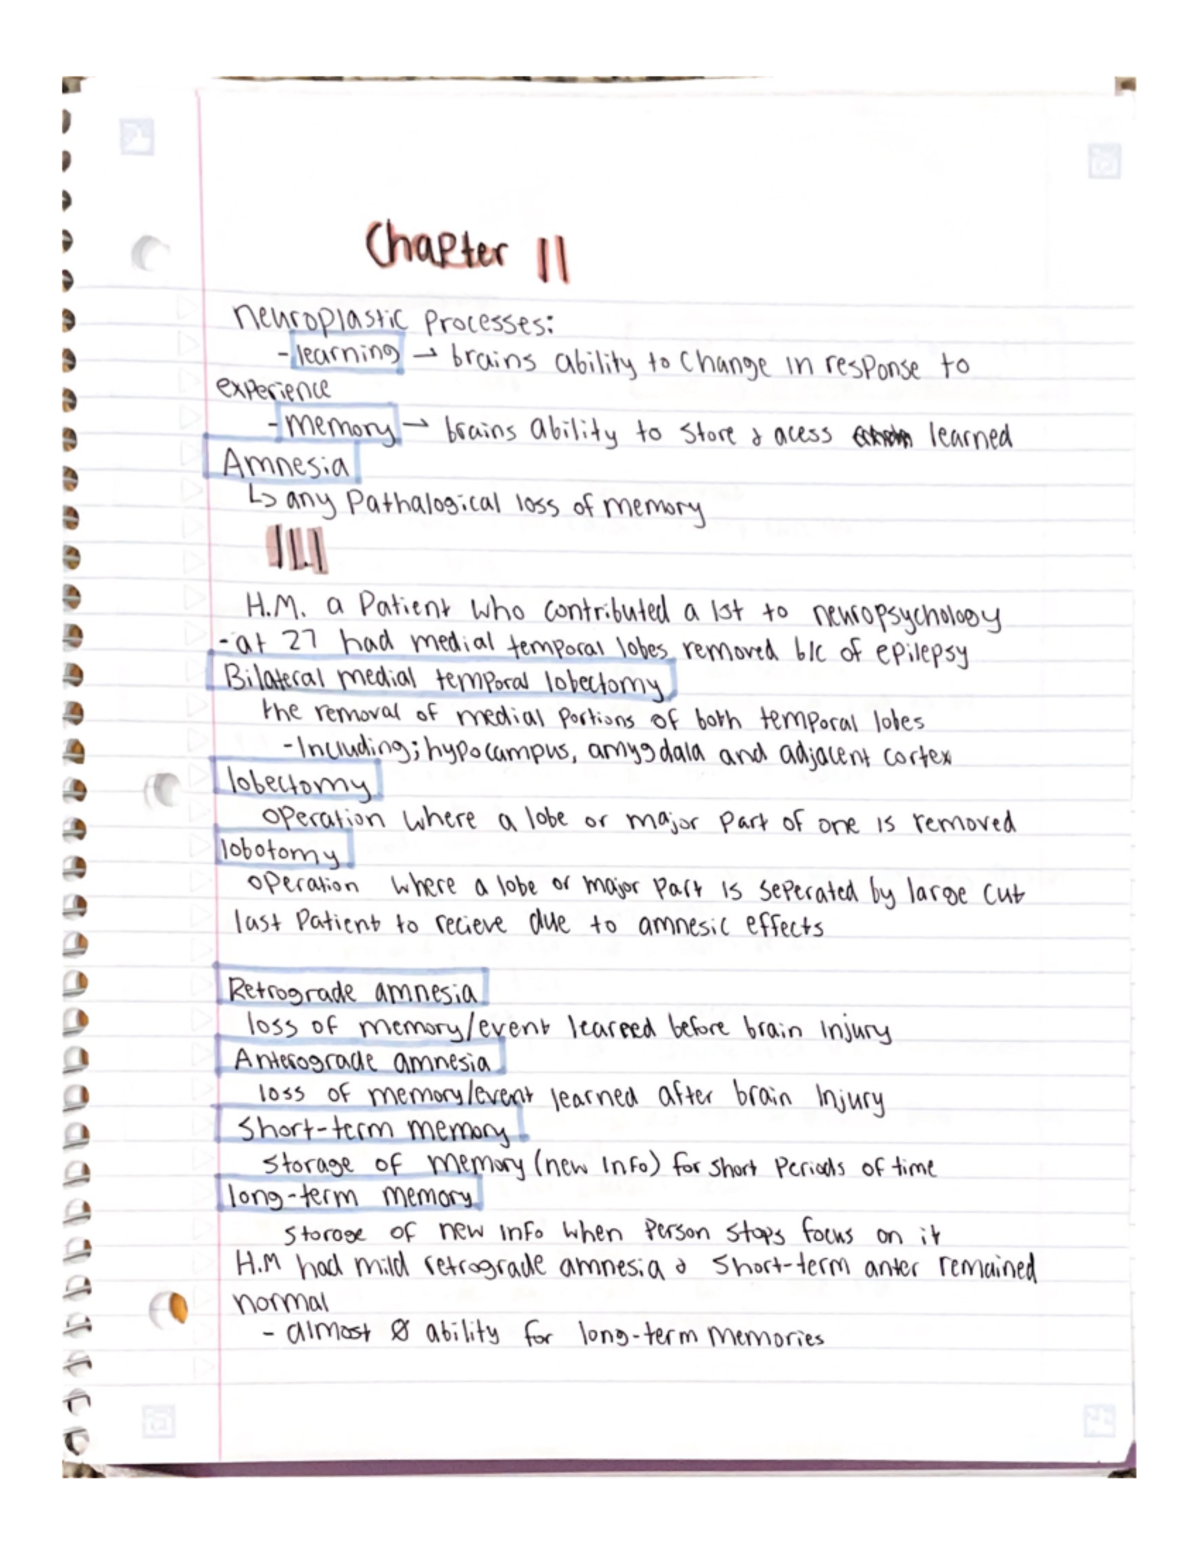 Chapter 11
neuroplastic Processes:
- learning → brains ability to change in response to
experience
- memory → brains ability to store & acess learned
Amnesia
↳ any Pathalogical loss of memory
11.1
H.M. a Patient who contributed a lot to neuropsychology
- at 27 had medial temporal lobes removed b/c of epilepsy
Bilateral medial temporal lobectomy
the removal of medial portions of both temporal lobes
- Including; hypocampus, amygdala and adjacent cortex
lobectomy
operation where a lobe or major part of one is removed
lobotomy
operation where a lobe or major part is seperated by large cut
last Patient to recieve due to amnesic effects
Retrograde amnesia
loss of memory/event learned before brain injury
Anterograde amnesia
loss of memory/event learned after brain Injury
Short-term memory
storage of memory (new info) for short periods of time
long-term memory
storage of new info when person stops focus on it
H.M had mild retrograde amnesia & short-term anter remained
normal
- almost Ø ability for long-term memories